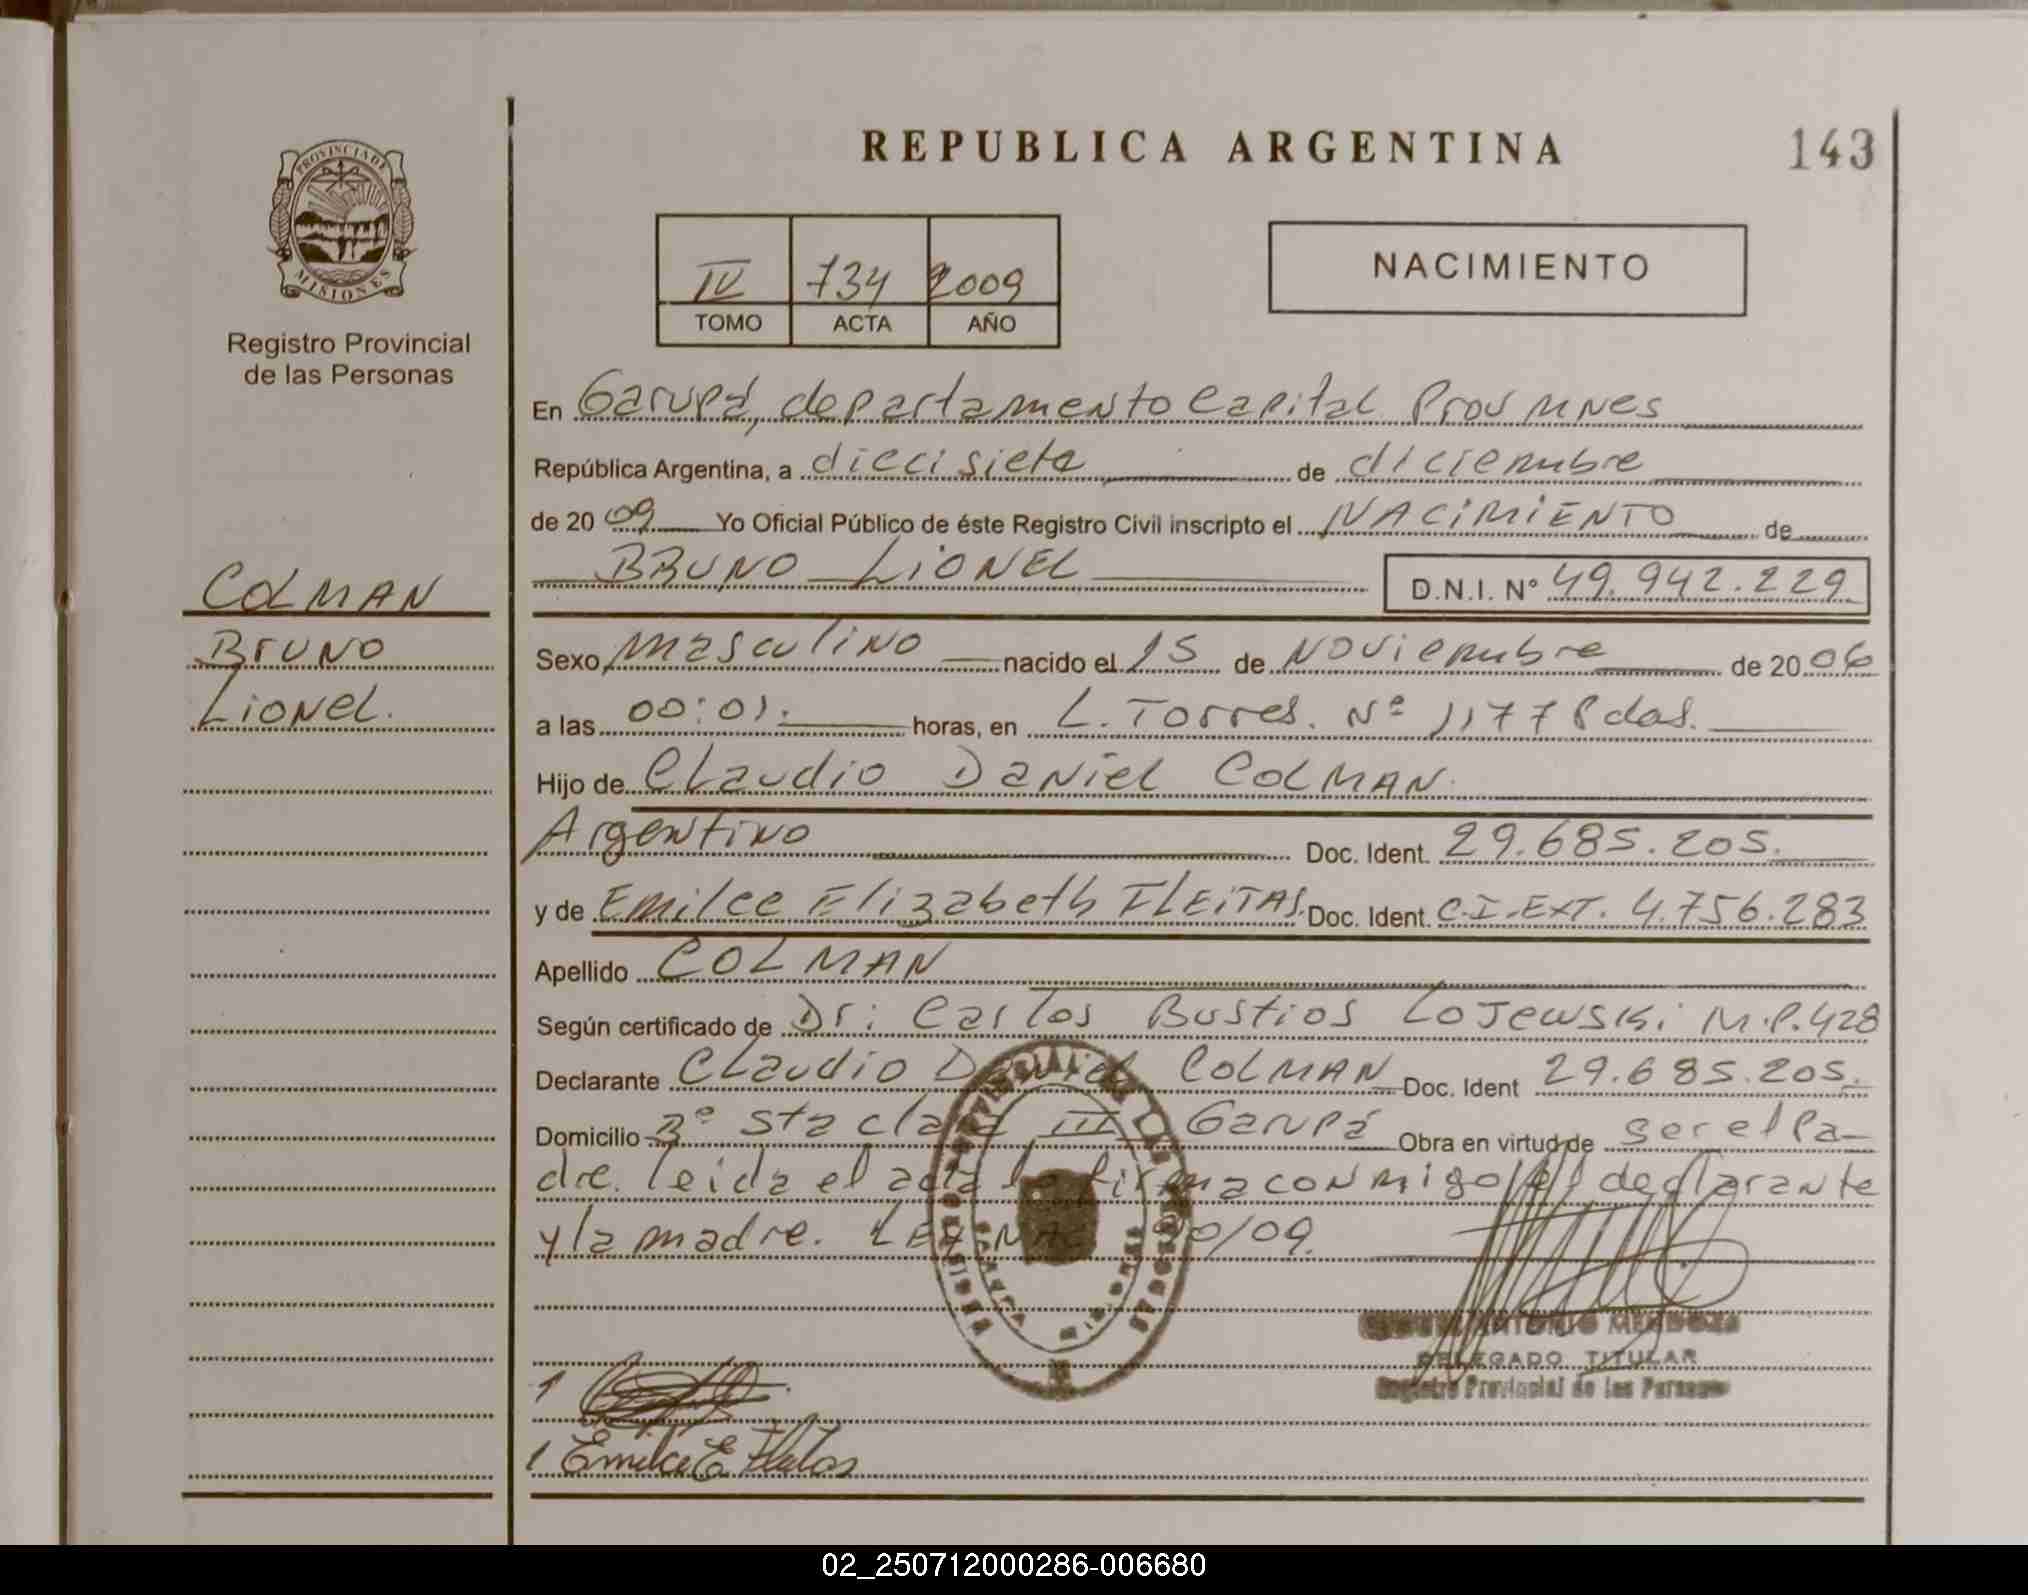 REPUBLICA ARGENTINA
143
PROVINCIA DE
MISIONES
Registro Provincial
de las Personas
IV 734 2009
TOMO ACTA AÑO
NACIMIENTO
En Garupá, departamento Capital Prov Mnes
República Argentina, a diecisiete de diciembre
de 2009 Yo Oficial Público de éste Registro Civil inscripto el NACIMIENTO de
BRUNO LIONEL D.N.I. Nº 49.942.229
COLMAN
Bruno
Lionel.
Sexo masculino nacido el 15 de Noviembre de 2006
a las 00:01. horas, en L. Torres. Nº 1177 Pdas.
Hijo de Claudio Daniel COLMAN.
Argentino Doc. Ident. 29.685.205.
y de Emilce Elizabeth FLEITAS. Doc. Ident. C.I.EXT. 4.756.283
Apellido COLMAN
Según certificado de Dr: Carlos Bustios Lojewski M.P.428
Declarante Claudio Daniel COLMAN Doc. Ident 29.685.205.
Domicilio Bº Sta Clara III Garupá Obra en virtud de ser el Pa-
dre. leida el acta la firma conmigo el declarante
y la madre. LEY NAC /09.
ANTONIO MENDOZA
DELEGADO TITULAR
Registro Provincial de las Personas
1
1 Emilce E Fleitas
02_250712000286-006680